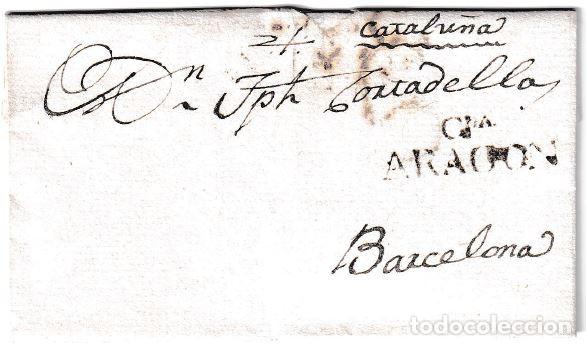 Cataluña
Dn Jph Cortadellas
CNA
ARAGON
Barcelona
todocoleccion